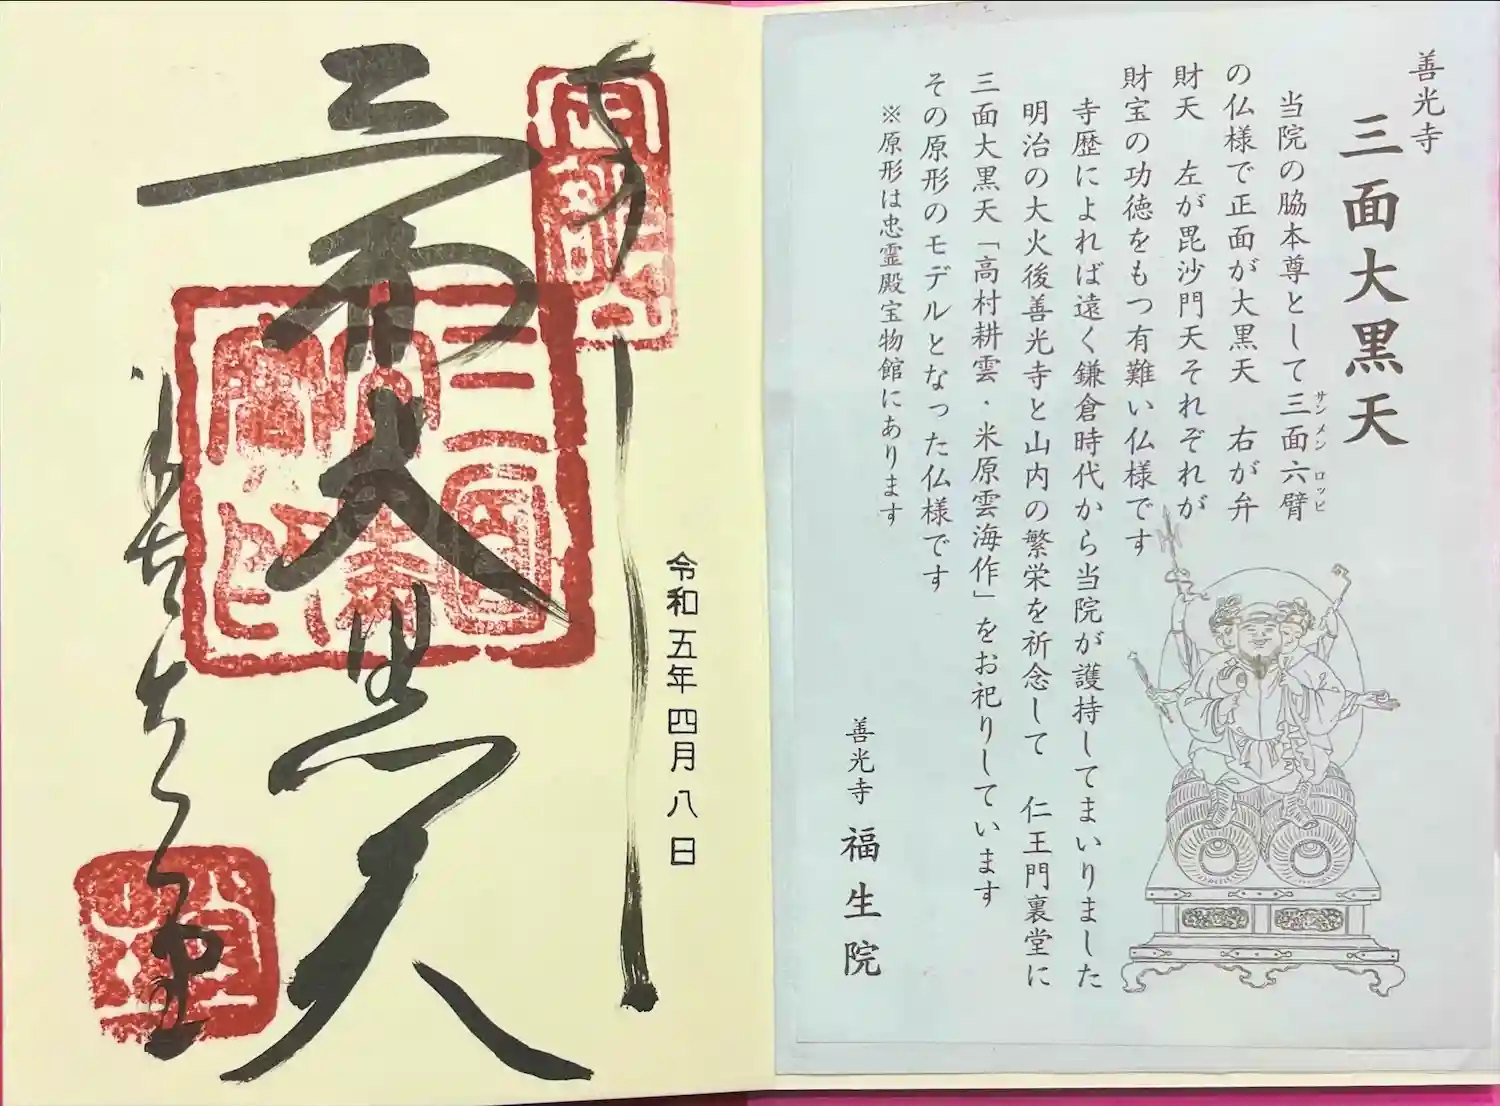 善光寺
三面大黒天
当院の脇本尊として三面六臂
サンメン ロッピ
の仏様で正面が大黒天 右が弁
財天 左が毘沙門天それぞれが
財宝の功徳をもつ有難い仏様です
寺歴によれば遠く鎌倉時代から当院が護持してまいりました
明治の大火後善光寺と山内の繁栄を祈念して 仁王門裏堂に
三面大黒天「高村耕雲・米原雲海作」をお祀りしています
その原形のモデルとなった仏様です
※原形は忠霊殿宝物館にあります
善光寺 福生院
令和五年四月八日
三面大黒天